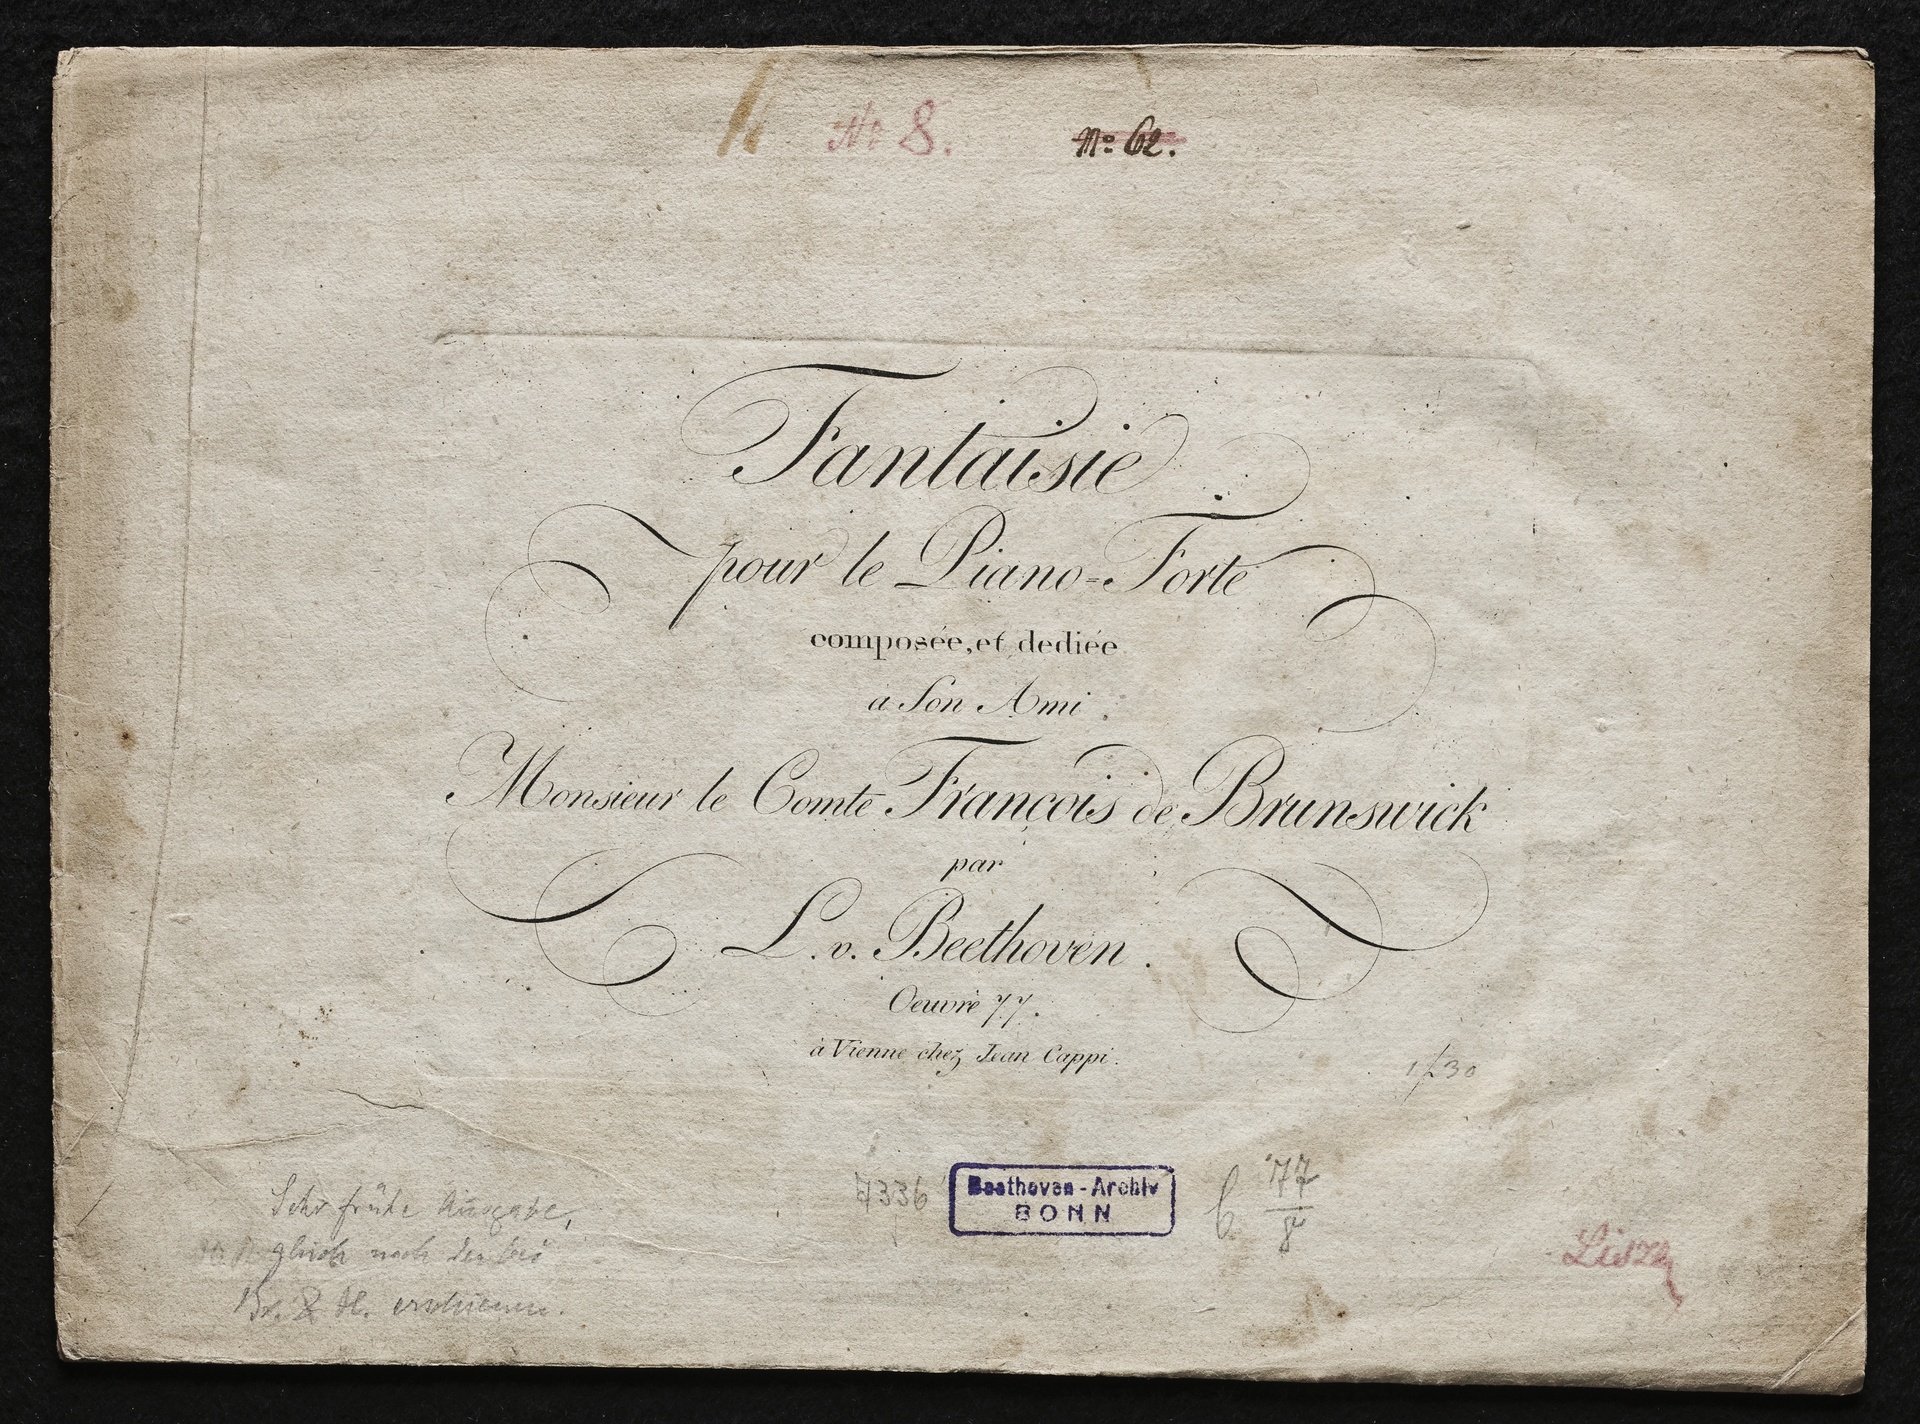 No 8.
No 62.
Fantaisie
pour le Piano=Forte
composée, et dediée
a Son Ami
Monsieur le Comte François de Brunswick
par
L. v. Beethoven.
Oeuvre 77.
à Vienne chez Jean Cappi.
1f 30
4336
Beethoven-Archiv
BONN
C 77
8
Sehr frühe Ausgabe,
gleich nach der bei
Br. & H. erschienen.